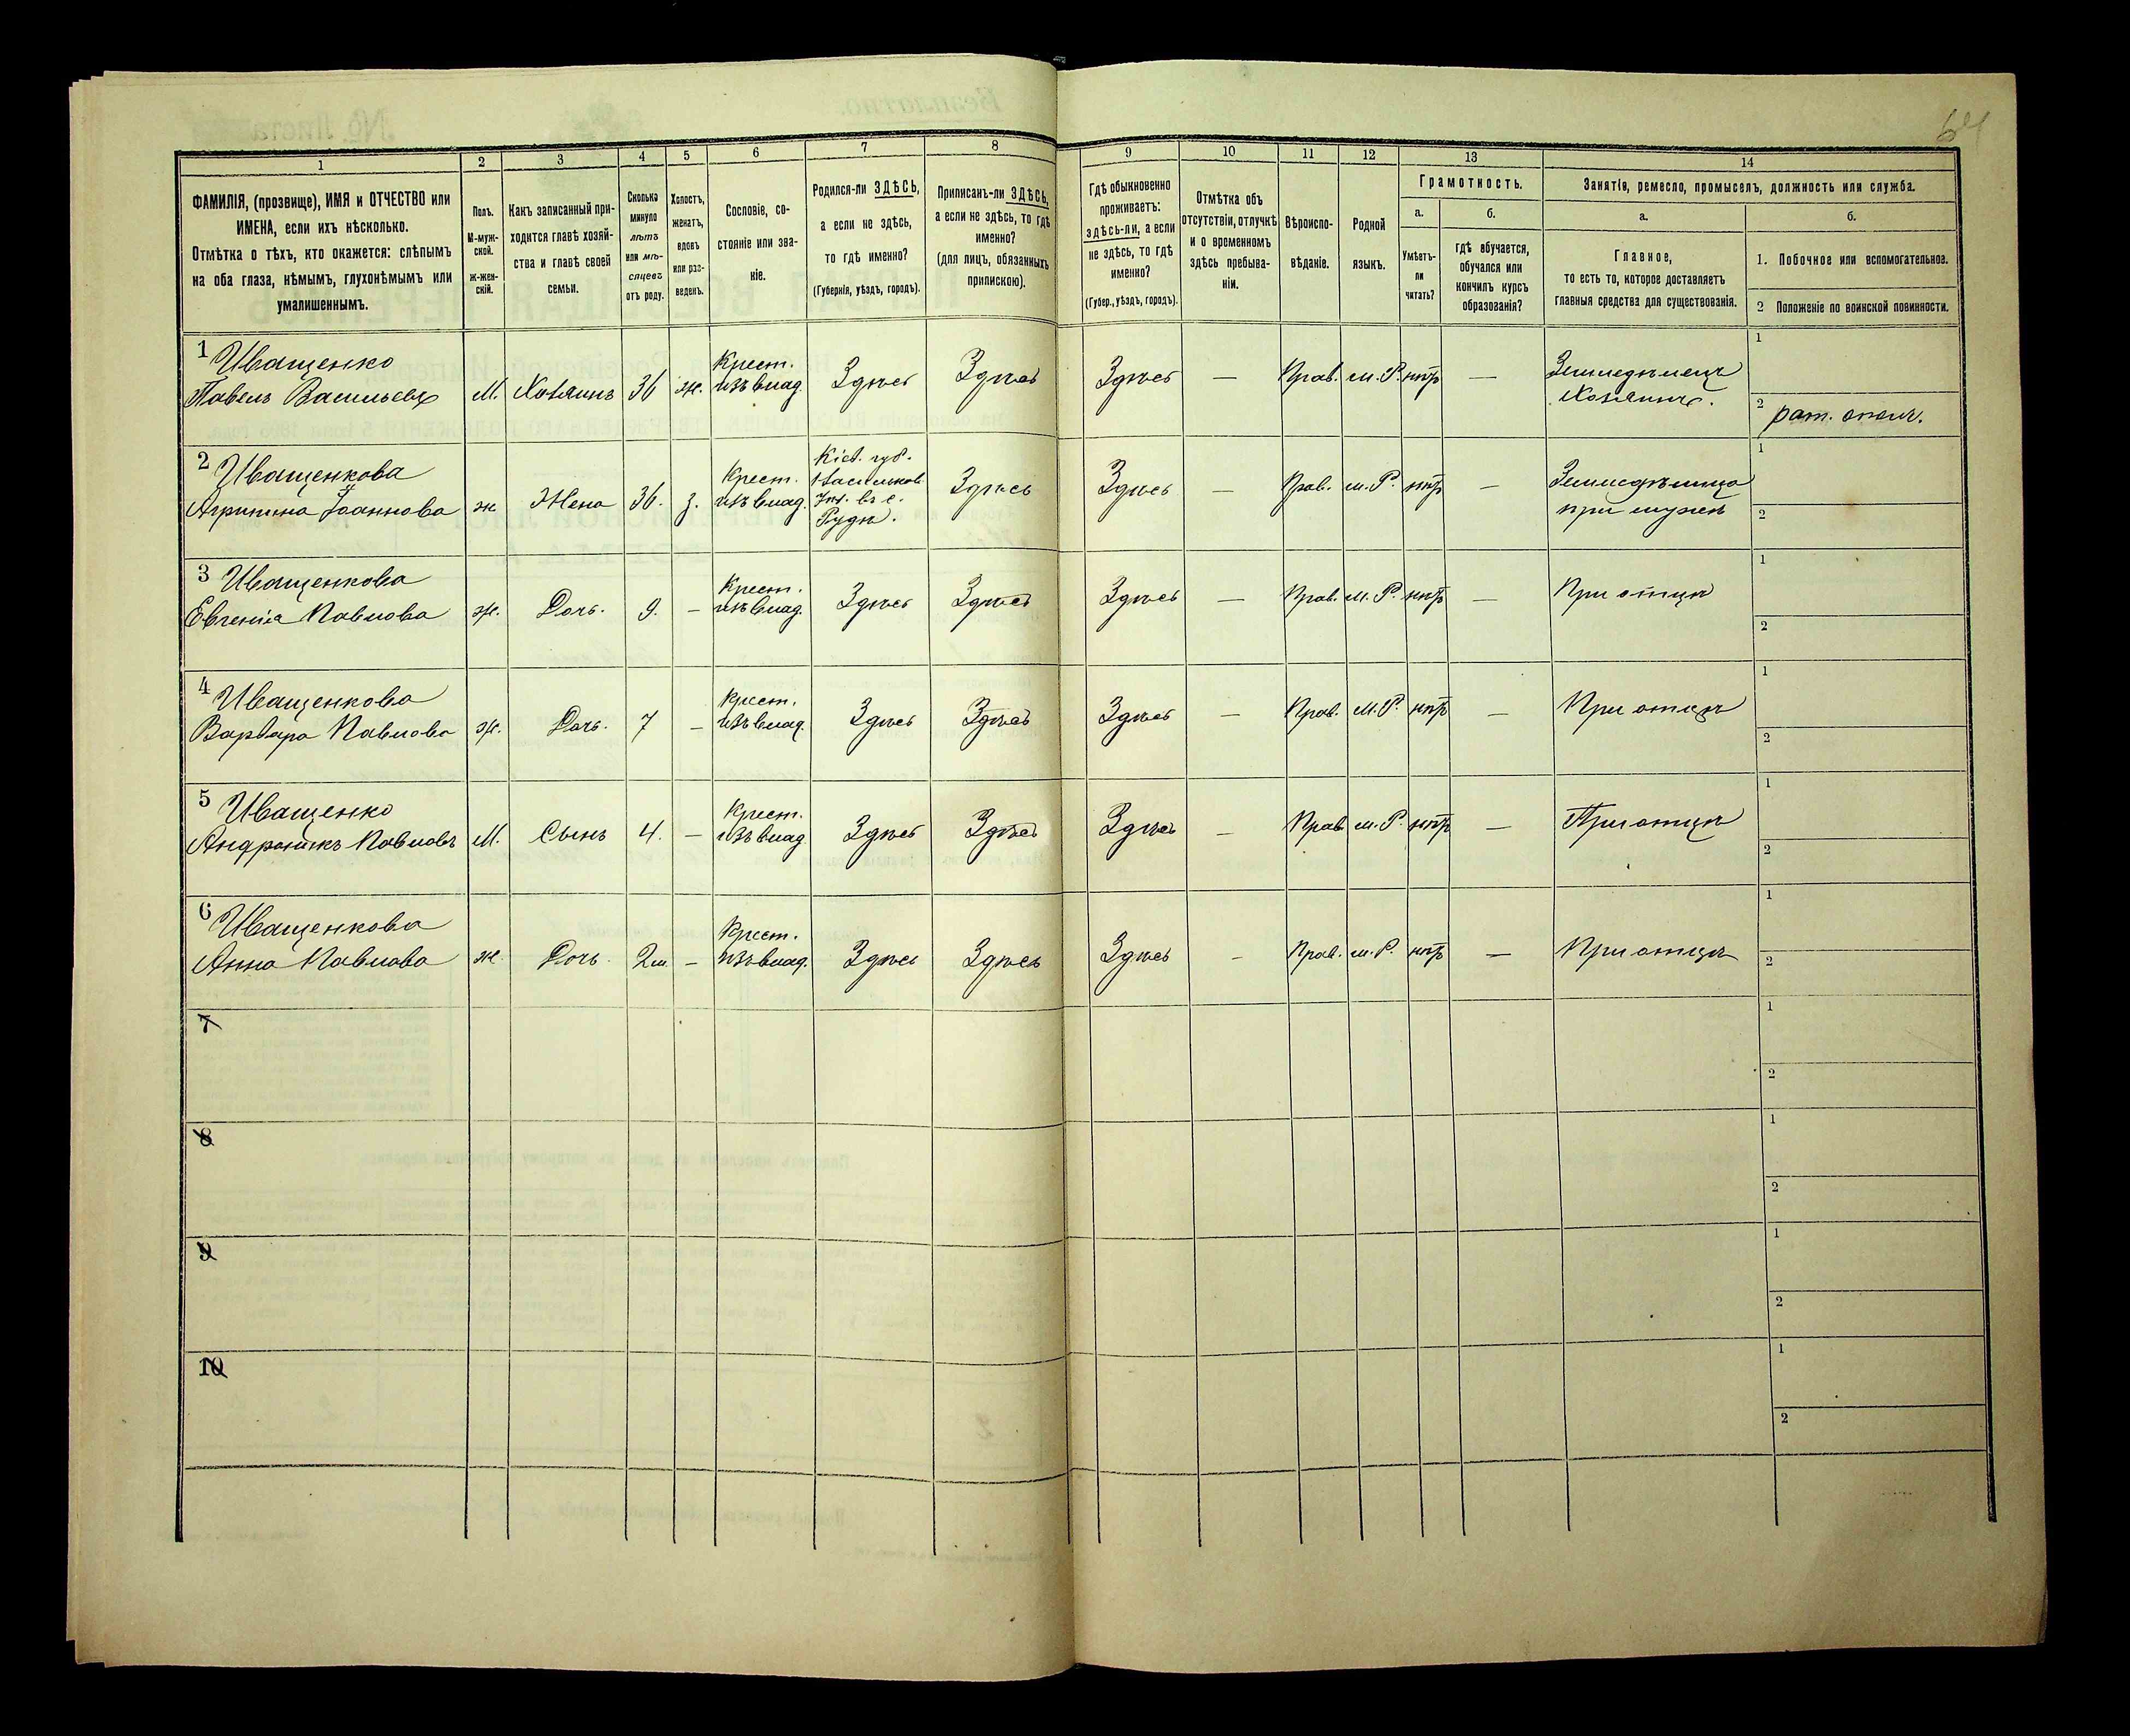 64
1 2 3 4 5 6 7 8 9 10 11 12 13 14
ФАМИЛІЯ, (прозвище), ИМЯ и ОТЧЕСТВО или
ИМЕНА, если ихъ нѣсколько.
Отмѣтка о тѣхъ, кто окажется: слѣпымъ
на оба глаза, нѣмымъ, глухонѣмымъ или
умалишеннымъ.
Полъ.
М-муж-
ской.
Ж-жен-
скій.
Какъ записанный при-
ходится главѣ хозяй-
ства и главѣ своей
семьи.
Сколько
минуло
лѣтъ
или мѣ-
сяцевъ
отъ роду.
Холостъ,
женатъ,
вдовъ
или раз-
веденъ.
Сословіе, со-
стояніе или зва-
ніе.
Родился-ли ЗДѢСЬ,
а если не здѣсь,
то гдѣ именно?
(Губернія, уѣздъ, городъ).
Приписанъ-ли ЗДѢСЬ,
а если не здѣсь, то гдѣ
именно?
(для лицъ, обязанныхъ
припискою).
Гдѣ обыкновенно
проживаетъ:
здѣсь-ли, а если
не здѣсь, то гдѣ
именно?
(Губер., уѣздъ, городъ).
Отмѣтка объ
отсутствіи, отлучкѣ
и о временномъ
здѣсь пребыва-
ніи.
Вѣроиспо-
вѣданіе.
Родной
языкъ.
Грамотность.
а.
Умѣетъ-
ли
читать?
б.
гдѣ обучается,
обучался или
кончилъ курсъ
образованія?
Занятія, ремесло, промыселъ, должность или служба.
а.
Главное,
то есть то, которое доставляетъ
главныя средства для существованія.
б.
1. Побочное или вспомогательное.
2 Положеніе по воинской повинности.
1 Иващенко Крест. Земледѣлецъ 1
Павелъ Васильевъ М. Хозяинъ 36 ж. изъ влад. Здѣсь Здѣсь Здѣсь — Прав. м. Р. нѣтъ — Хозяинъ. 2 рат. опол.
2 Иващенкова Кіев. губ. 1
Крест. Васильков. Земледѣлица
Агрипина Іоаннова ж Жена 36. з. изъ влад. Уѣз. въ с. Здѣсь Здѣсь — Прав. м. Р. нѣтъ — при мужѣ 2
Рудѣ.
3 Иващенкова Крест. 1
Евгенія Павлова ж. Дочь. 9. — изъ влад. Здѣсь Здѣсь Здѣсь — Прав. м. Р. нѣтъ — При отцѣ 2
4 Иващенкова Крест. 1
Варвара Павлова ж. Дочь. 7 — изъ влад. Здѣсь Здѣсь Здѣсь — Прав. м. Р. нѣтъ — При отцѣ 2
5 Иващенко Крест. 1
Андроникъ Павловъ М. Сынъ 4. — изъ влад. Здѣсь Здѣсь Здѣсь — Прав. м. Р. нѣтъ — При отцѣ 2
6 Иващенкова Крест. 1
Анна Павлова ж. Дочь. 2 м. — изъ влад. Здѣсь Здѣсь Здѣсь — Прав. м. Р. нѣтъ — При отцѣ 2
7 1
2
8 1
2
9 1
2
10 1
2